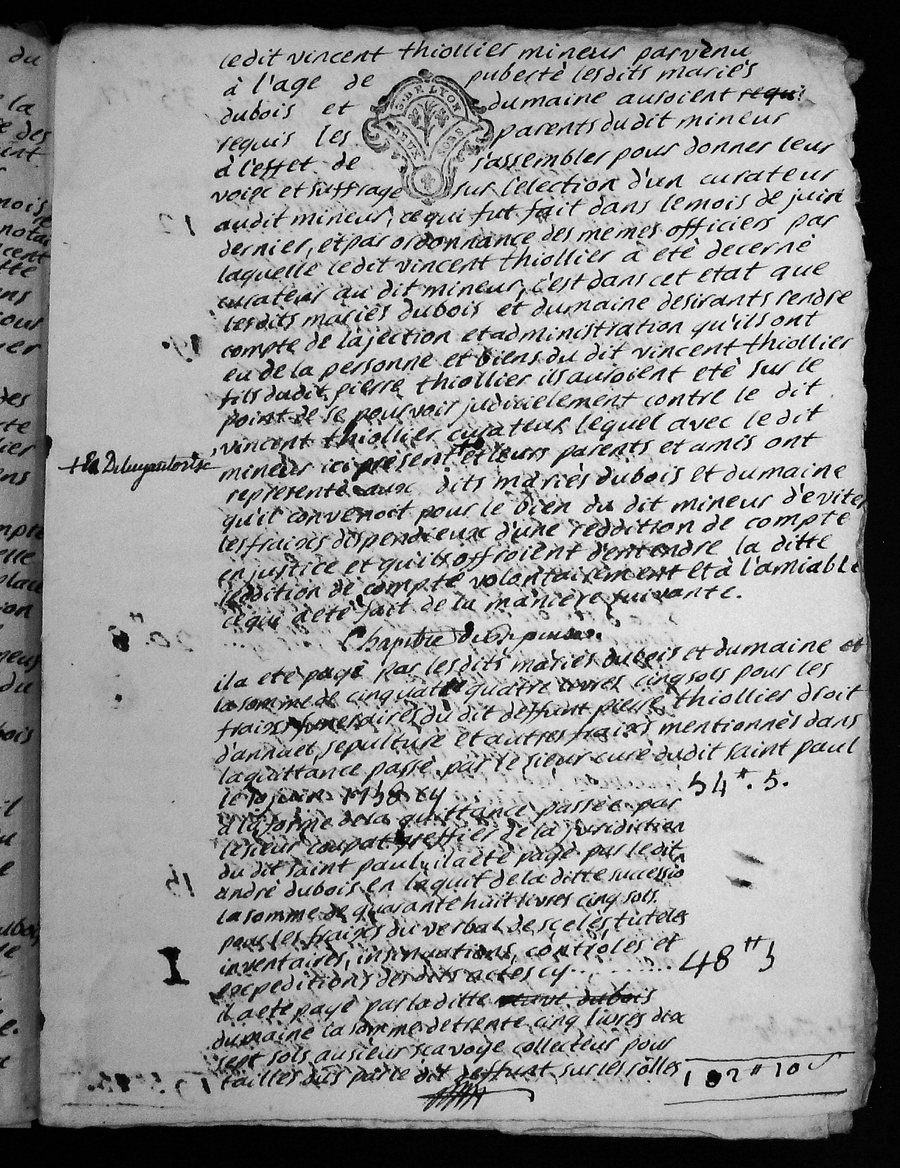 ledit vincent thiollier mineur parvenu
à l'age de puberté lesdits mariés
dubois et dumaine auroient requi
requis les parents du dit mineur
à l'effet de s'assembler pour donner leur
voix et suffrage sur l'election d'un curateur
audit mineur, ce qui fut fait dans le mois de juin
dernier, et par ordonnance des memes officiers par
laquelle ledit vincent thiollier a eté decerné
curateur au dit mineur, c'est dans cet etat que
lesdits mariés dubois et dumaine desirants rendre
compte de la jection et administration qu'ils ont
eu de la personne et biens du dit vincent thiollier
fils dudit pierre thiollier ils auroient eté sur le
point de se pourvoir judicielement contre le dit
vincent thiollier curateur lequel avec le dit
mineur ici présent et leurs parents et amis ont
representé aux dits mariés dubois et dumaine
qu'il convenoit pour le bien du dit mineur d'eviter
les fraixs dispendieux d'une reddition de compte
en justice et qu'ils offroient d'entendre la ditte
reddition de compte volontairement et à l'amiable
ce qui a eté fait de la maniere suivante.
Chapitre de Depense.
il a eté payé par les dits mariés dubois et dumaine et
la somme de cinquante quatre livres cinq sols pour les
fraixs funeraires du dit deffunt pierre thiollier droit
d'annuel, sepulture et autres fraixs mentionnés dans
la quittance passé par le sieur curé dudit saint paul
le 10 juin 1758 cy 54 ₶. 5.
à la forme de la quittance passée par
le sieur coupat greffier de la juridiction
du dit saint paul il a eté payé par ledit
andré dubois en l'aquit de la ditte successio
la somme de quarante huit livres cinq sols.
pour les fraixs du verbal de scelés tutele
inventaires, insinuations, contrôles et
expeditions des dits actes cy 48 ₶ 5
il a eté payé par la ditte veuve dubois
dumaine la somme de trente cinq livres dix
sept sols au sieur scavoye collecteur pour
tailles dus par le dit deffunt sur les rôlles
102 ₶ 10 s
G. DE LYON
DEUX SOLS